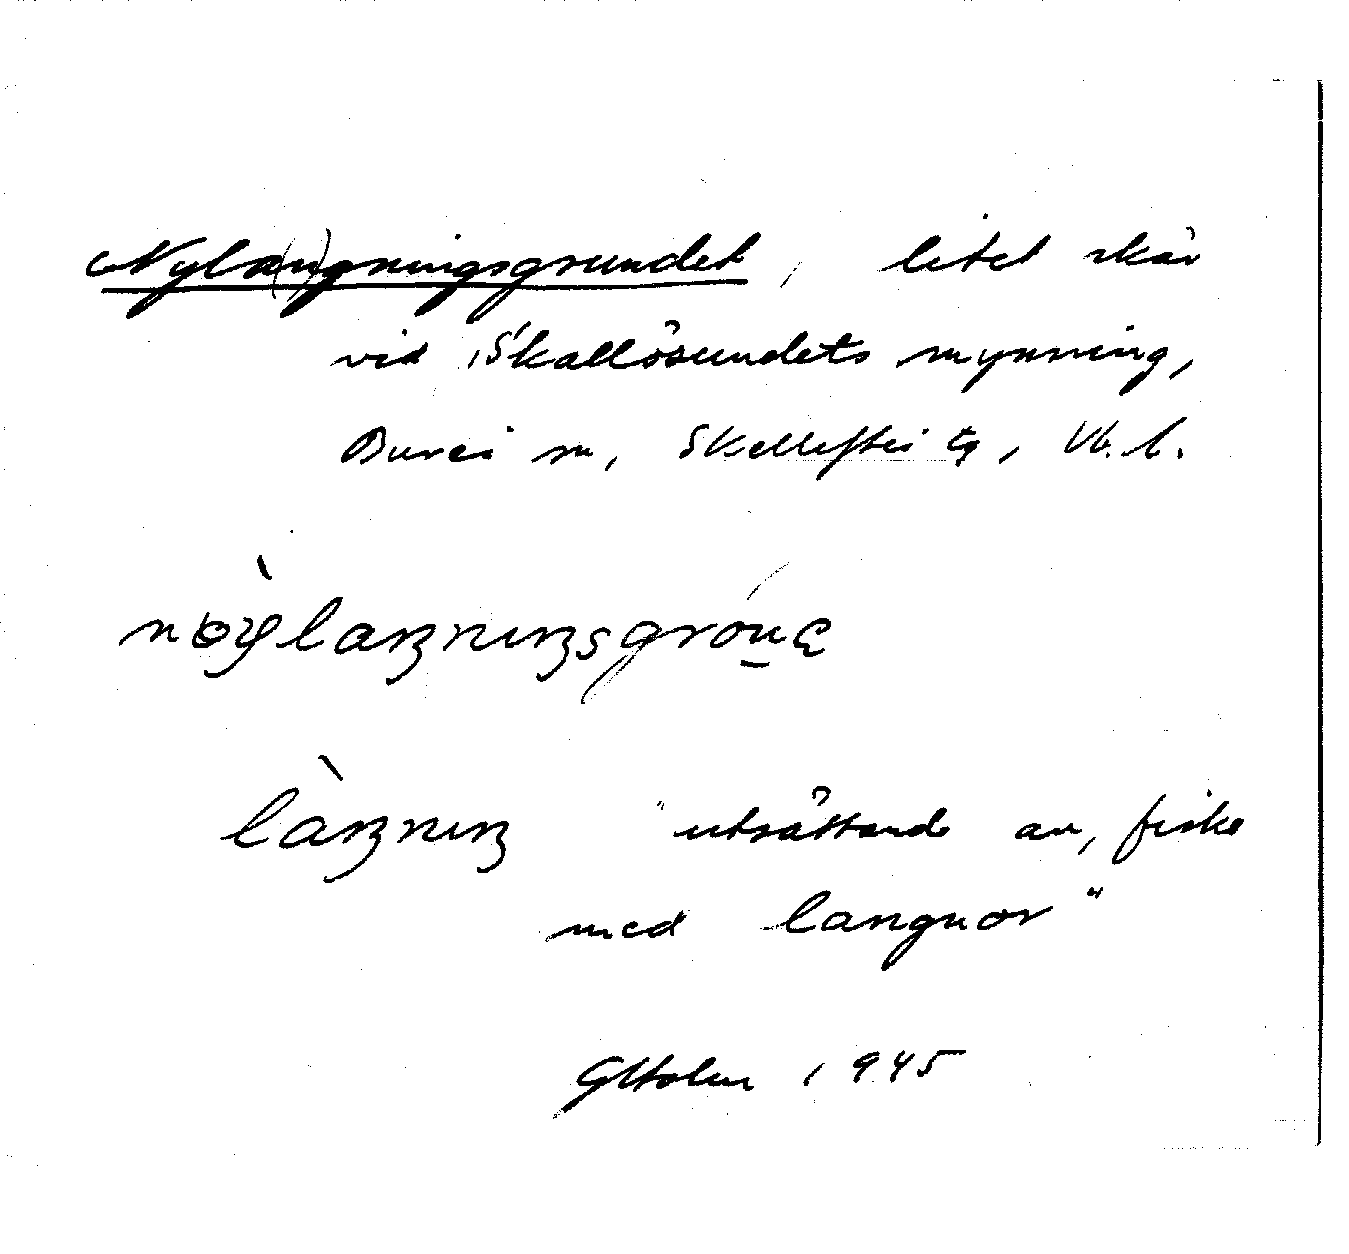 Nyla(n)gningsgrundet, litet skär
vid Skallösundets mynning,
Bureå sn, Skellefteå tg, Vb. l.
nɵylaŋnıŋsgrón̠ɛ
làŋnıŋ "utsättande av, fiske
med langnor"
GHolm 1945